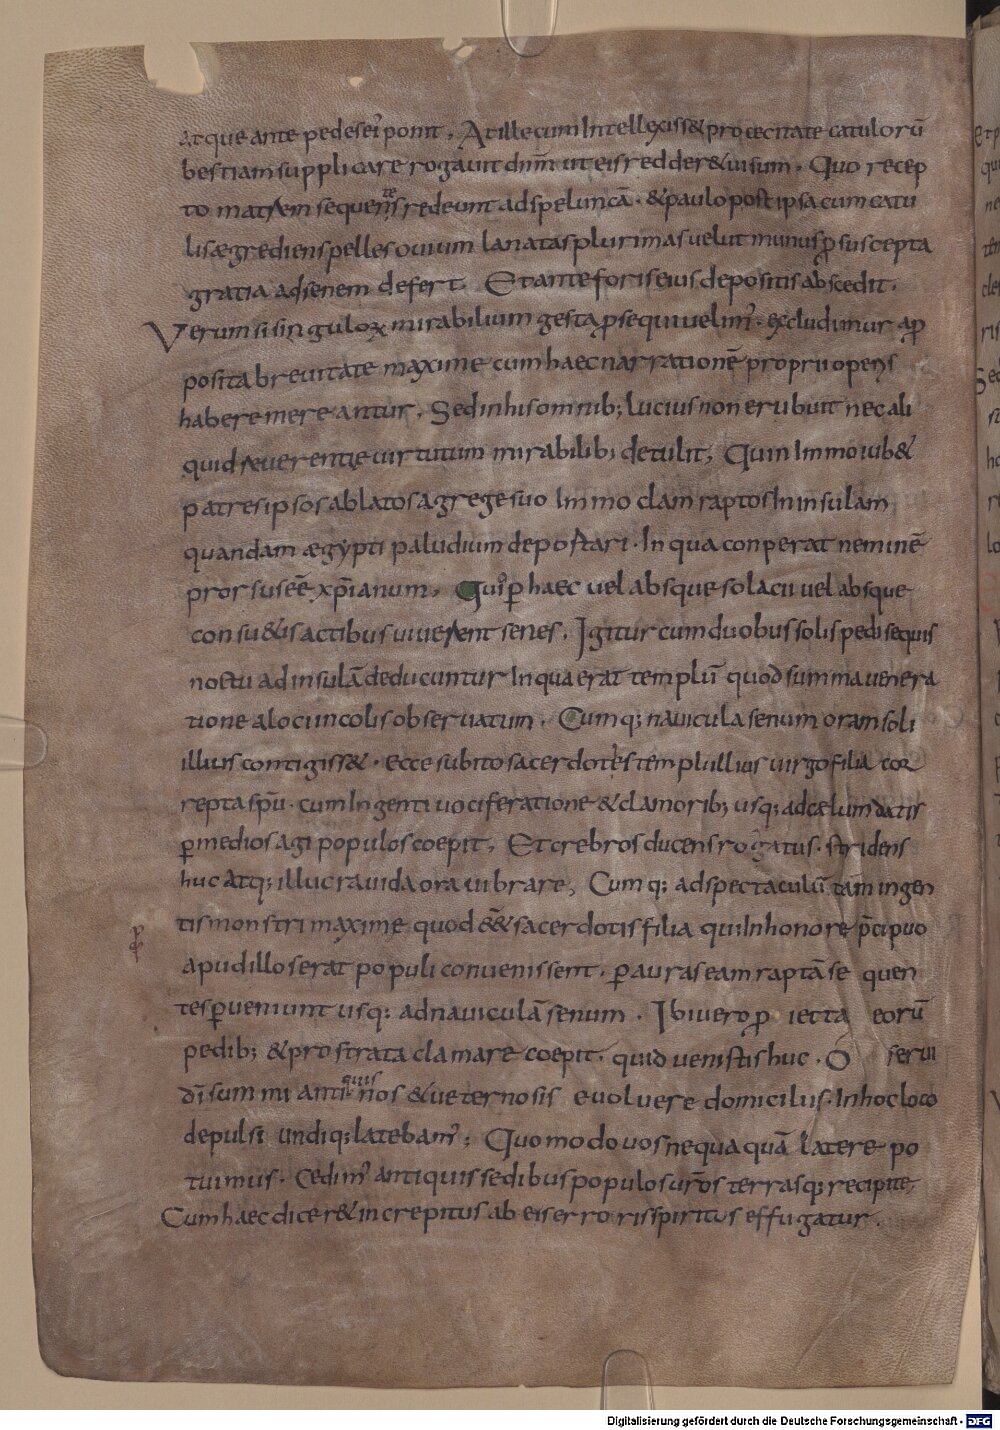 atque ante pedes ei' ponit. At ille cum Intellexiss& pro cecitate catulorū
bestiam supplicare rogauit dn̄m ut eis redder& uisum. Quo recep
to matrem sequentes redeunt ad speluncā. & paulo post ipsa cum catu
lis ægrediens pelles ouium lanatas plurimas uelut munus ꝓ suscepta
gratia ad senem defert. Et ante foris eius depositis abscedit.
Verum si singuloꝝ mirabilium gesta ꝓsequi uelim'. excludimur a ꝓ
posita breuitate maxime cum haec narrationē proprii operis
habere mererantur. Sed in his omnib; lucius non erubuit nec ali
quid reuerentię uirtutum mirabilib; detulit, Quin Immo iub&
patres ipsos ablatos a grege suo Immo clam raptos In insulam
quandam ægypti paludium depo rtari. In qua conperat neminē
prorsus eē xp̄ianum. Quo ꝑ haec uel absque solacii uel absque
consu&is actibus uiuerent senes. Igitur cum duobus solis pedisequis
noctu ad insulā deducuntur In qua erat templū quod summa uenera
tione a loci incolis obseruatum. Cumq; nauicula senum oram soli
illius contigiss&. ecce subito sacerdotes templi Illius uirgo filia cor
repta sp̄u. cum Ingenti uociferatione & clamorib; usq; ad cælum datis
ꝑ medios agi populos coepit, Et crebros ducens rogatus. stridens
huc atq; illuc rauida ora uibrare, Cumq; ad spectaculū tam ingen
tis monstri maxime quod ēē& sacerdotis filia qui In honore p̄cipuo
apud illos erat populi conuenissent. ꝑ auras eam raptā se quen
tes ꝑueniunt usq; ad nauiculā senum. Ibi uero ꝓ iecta eorū
pedib; & prostrata clamare coepit. quid uenistis huc. O serui
dī summi antiquis nos & ueternosis euoluere domiciliis. In hoc loco
depulsi undiq; latebam'; Quomodo uos nequaquā latere po
tuimus. Cedim' antiquis sedibus populos ur̄os terrasq; recipite,
Cum haec dicer& increpitus ab eis erroris spiritus effugatur.
Digitalisierung gefördert durch die Deutsche Forschungsgemeinschaft - DFG